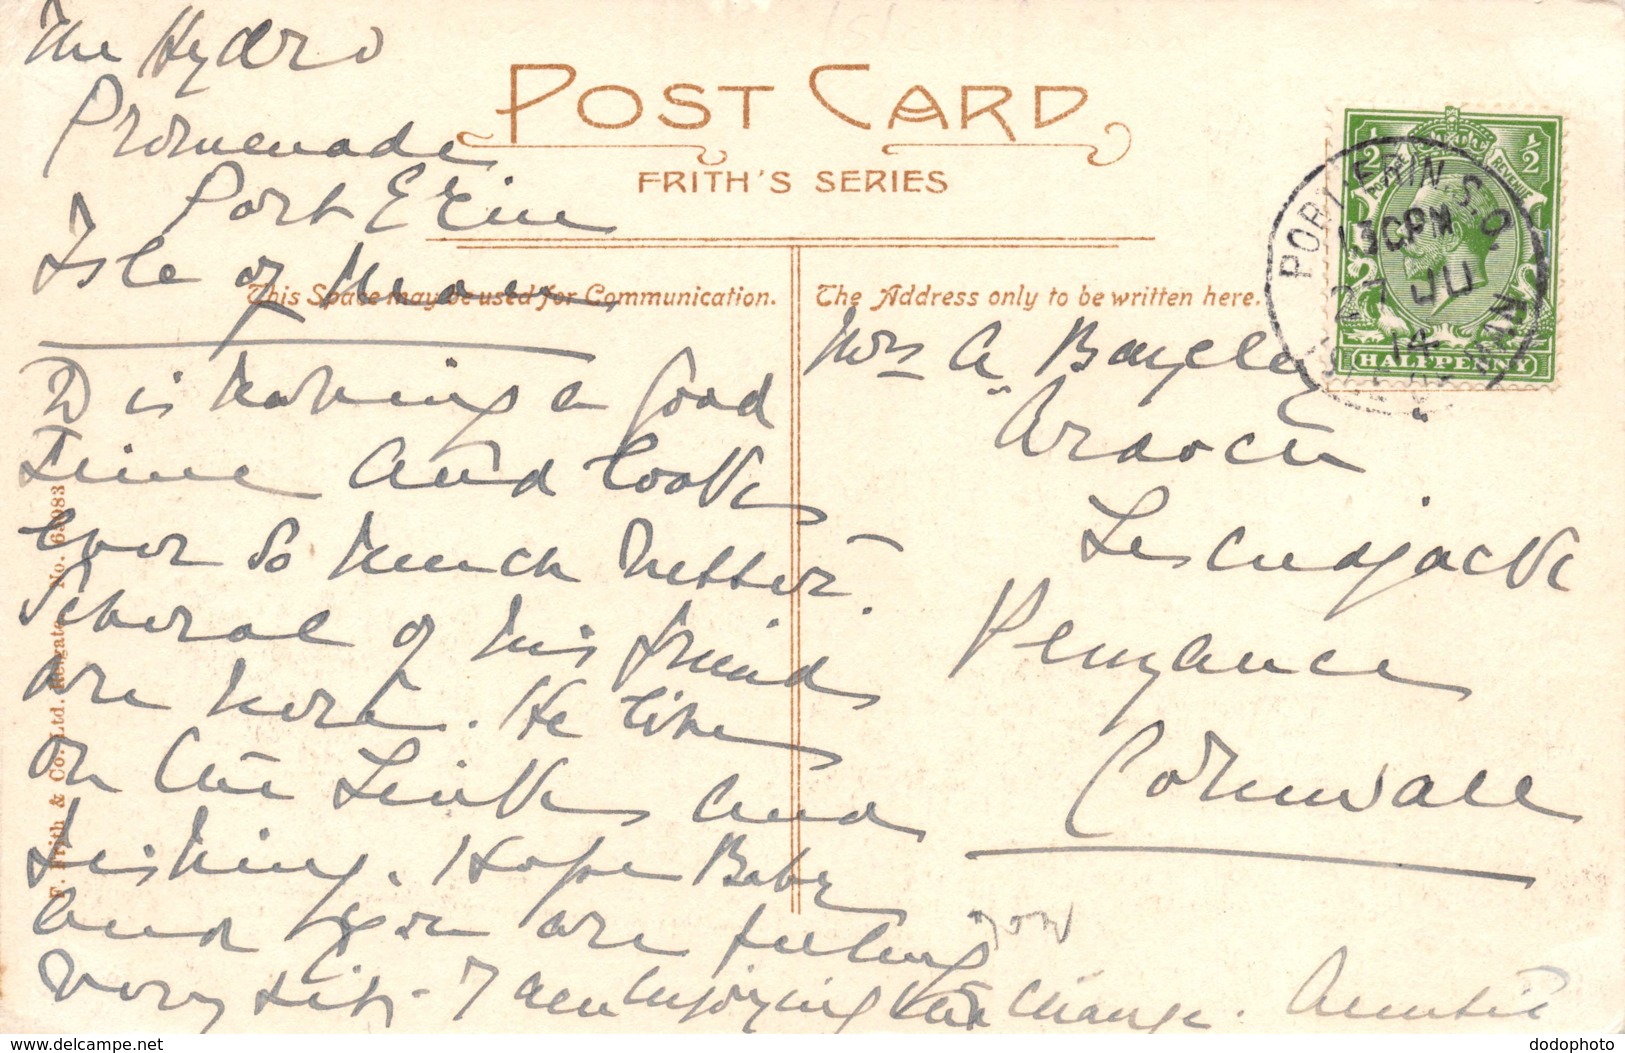 The Hydro
Promenade
Port Erin
Isle of Man
POST CARD
FRITH'S SERIES
This Space may be used for Communication.
The Address only to be written here.
D is having a good
time and looks
ever so much better.
Several of his friends
are here. He lives
on the Links and
fishing. Hope Baby
and you are feeling
very fit. I am enjoying the change. Auntie
Mrs A Bayley
Lescudjack
Penzance
Cornwall
½ ½
POSTAGE REVENUE
HALFPENNY
PORT ERIN S.O.
27 JU
14
F. Frith & Co. Ltd. Reigate
www.delcampe.net
dodophoto